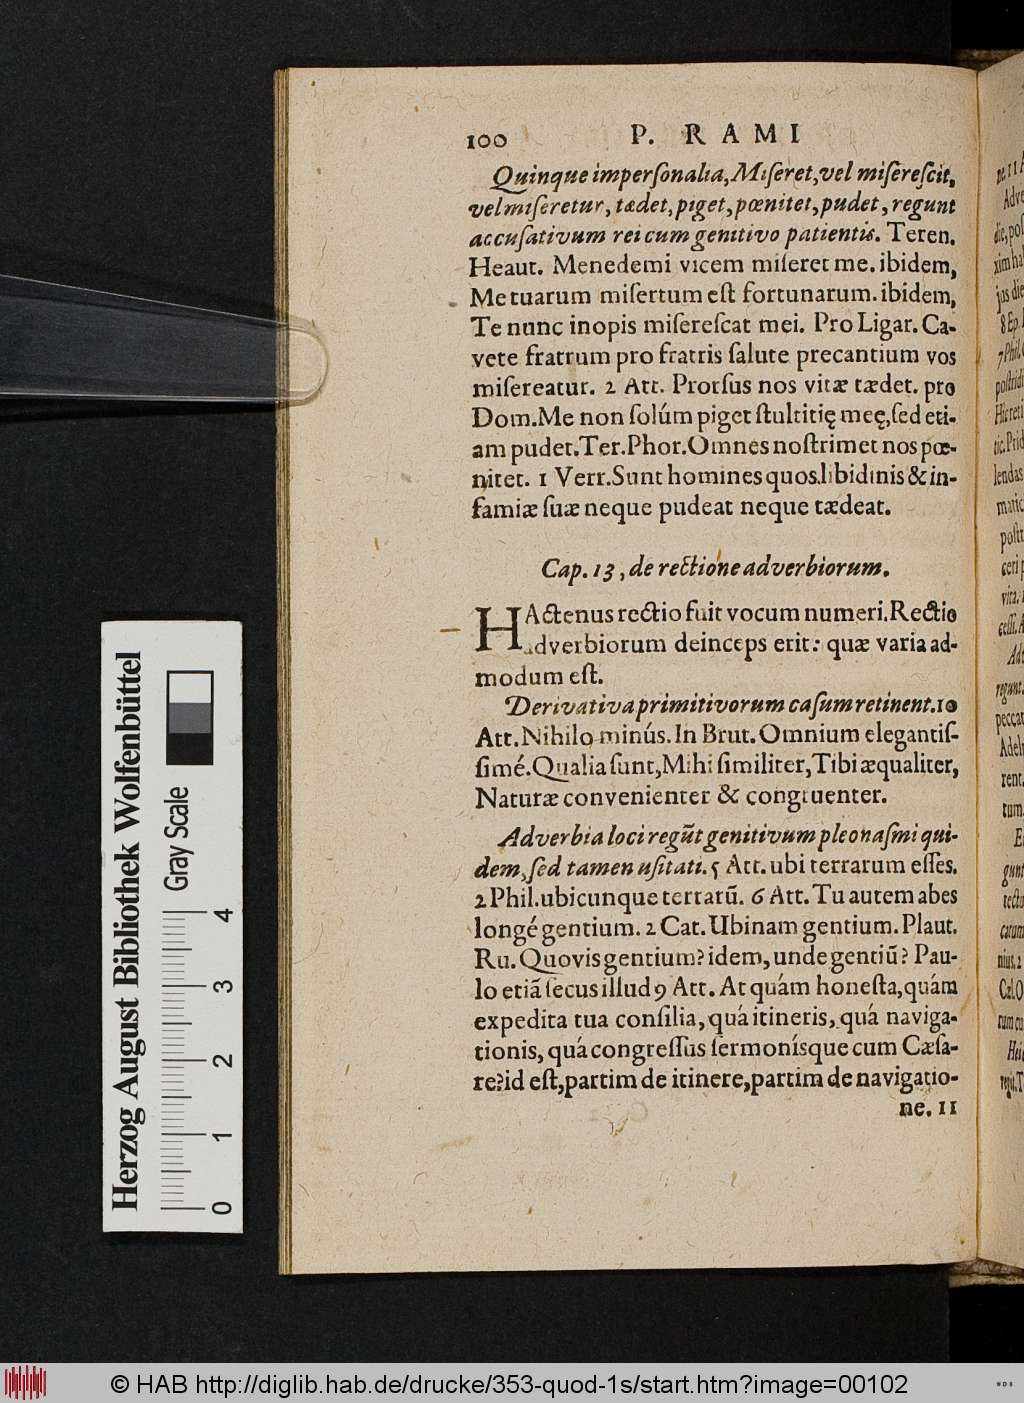 100 P. RAMI
Quinque impersonalia, Miseret, vel miserescit,
vel miseretur, tædet, piget, pœnitet, pudet, regunt
accusativum rei cum genitivo patientis. Teren.
Heaut. Menedemi vicem miseret me. ibidem,
Me tuarum misertum est fortunarum. ibidem,
Te nunc inopis miserescat mei. Pro Ligar. Ca-
vete fratrum pro fratris salute precantium vos
misereatur. 2 Att. Prorsus nos vitæ tædet. pro
Dom. Me non solúm piget stultitię meę, sed eti-
am pudet. Ter. Phor. Omnes nostrimet nos pœ-
nitet. 1 Verr. Sunt homines quos libidinis & in-
famiæ suæ neque pudeat neque tædeat.
Cap. 13, de rectione adverbiorum.
HActenus rectio fuit vocum numeri. Rectio
adverbiorum deinceps erit: quæ varia ad-
modum est.
Derivativa primitivorum casum retinent. 10
Att. Nihilo minús. In Brut. Omnium elegantis-
simé. Qualia sunt, Mihi similiter, Tibi æqualiter,
Naturæ convenienter & congruenter.
Adverbia loci regũt genitivum pleonasmi qui-
dem, sed tamen usitati. 5 Att. ubi terrarum esses.
2 Phil. ubicunque terrarũ. 6 Att. Tu autem abes
longé gentium. 2 Cat. Ubinam gentium. Plaut.
Ru. Quovis gentium? idem, unde gentiũ? Pau-
lo etiã secus illud 9 Att. At quám honesta, quám
expedita tua consilia, quá itineris, quá naviga-
tionis, quá congressus sermonísque cum Cæsa-
re? id est, partim de itinere, partim de navigatio-
ne. 11
Herzog August Bibliothek Wolfenbüttel
Gray Scale
0 1 2 3 4
© HAB http://diglib.hab.de/drucke/353-quod-1s/start.htm?image=00102